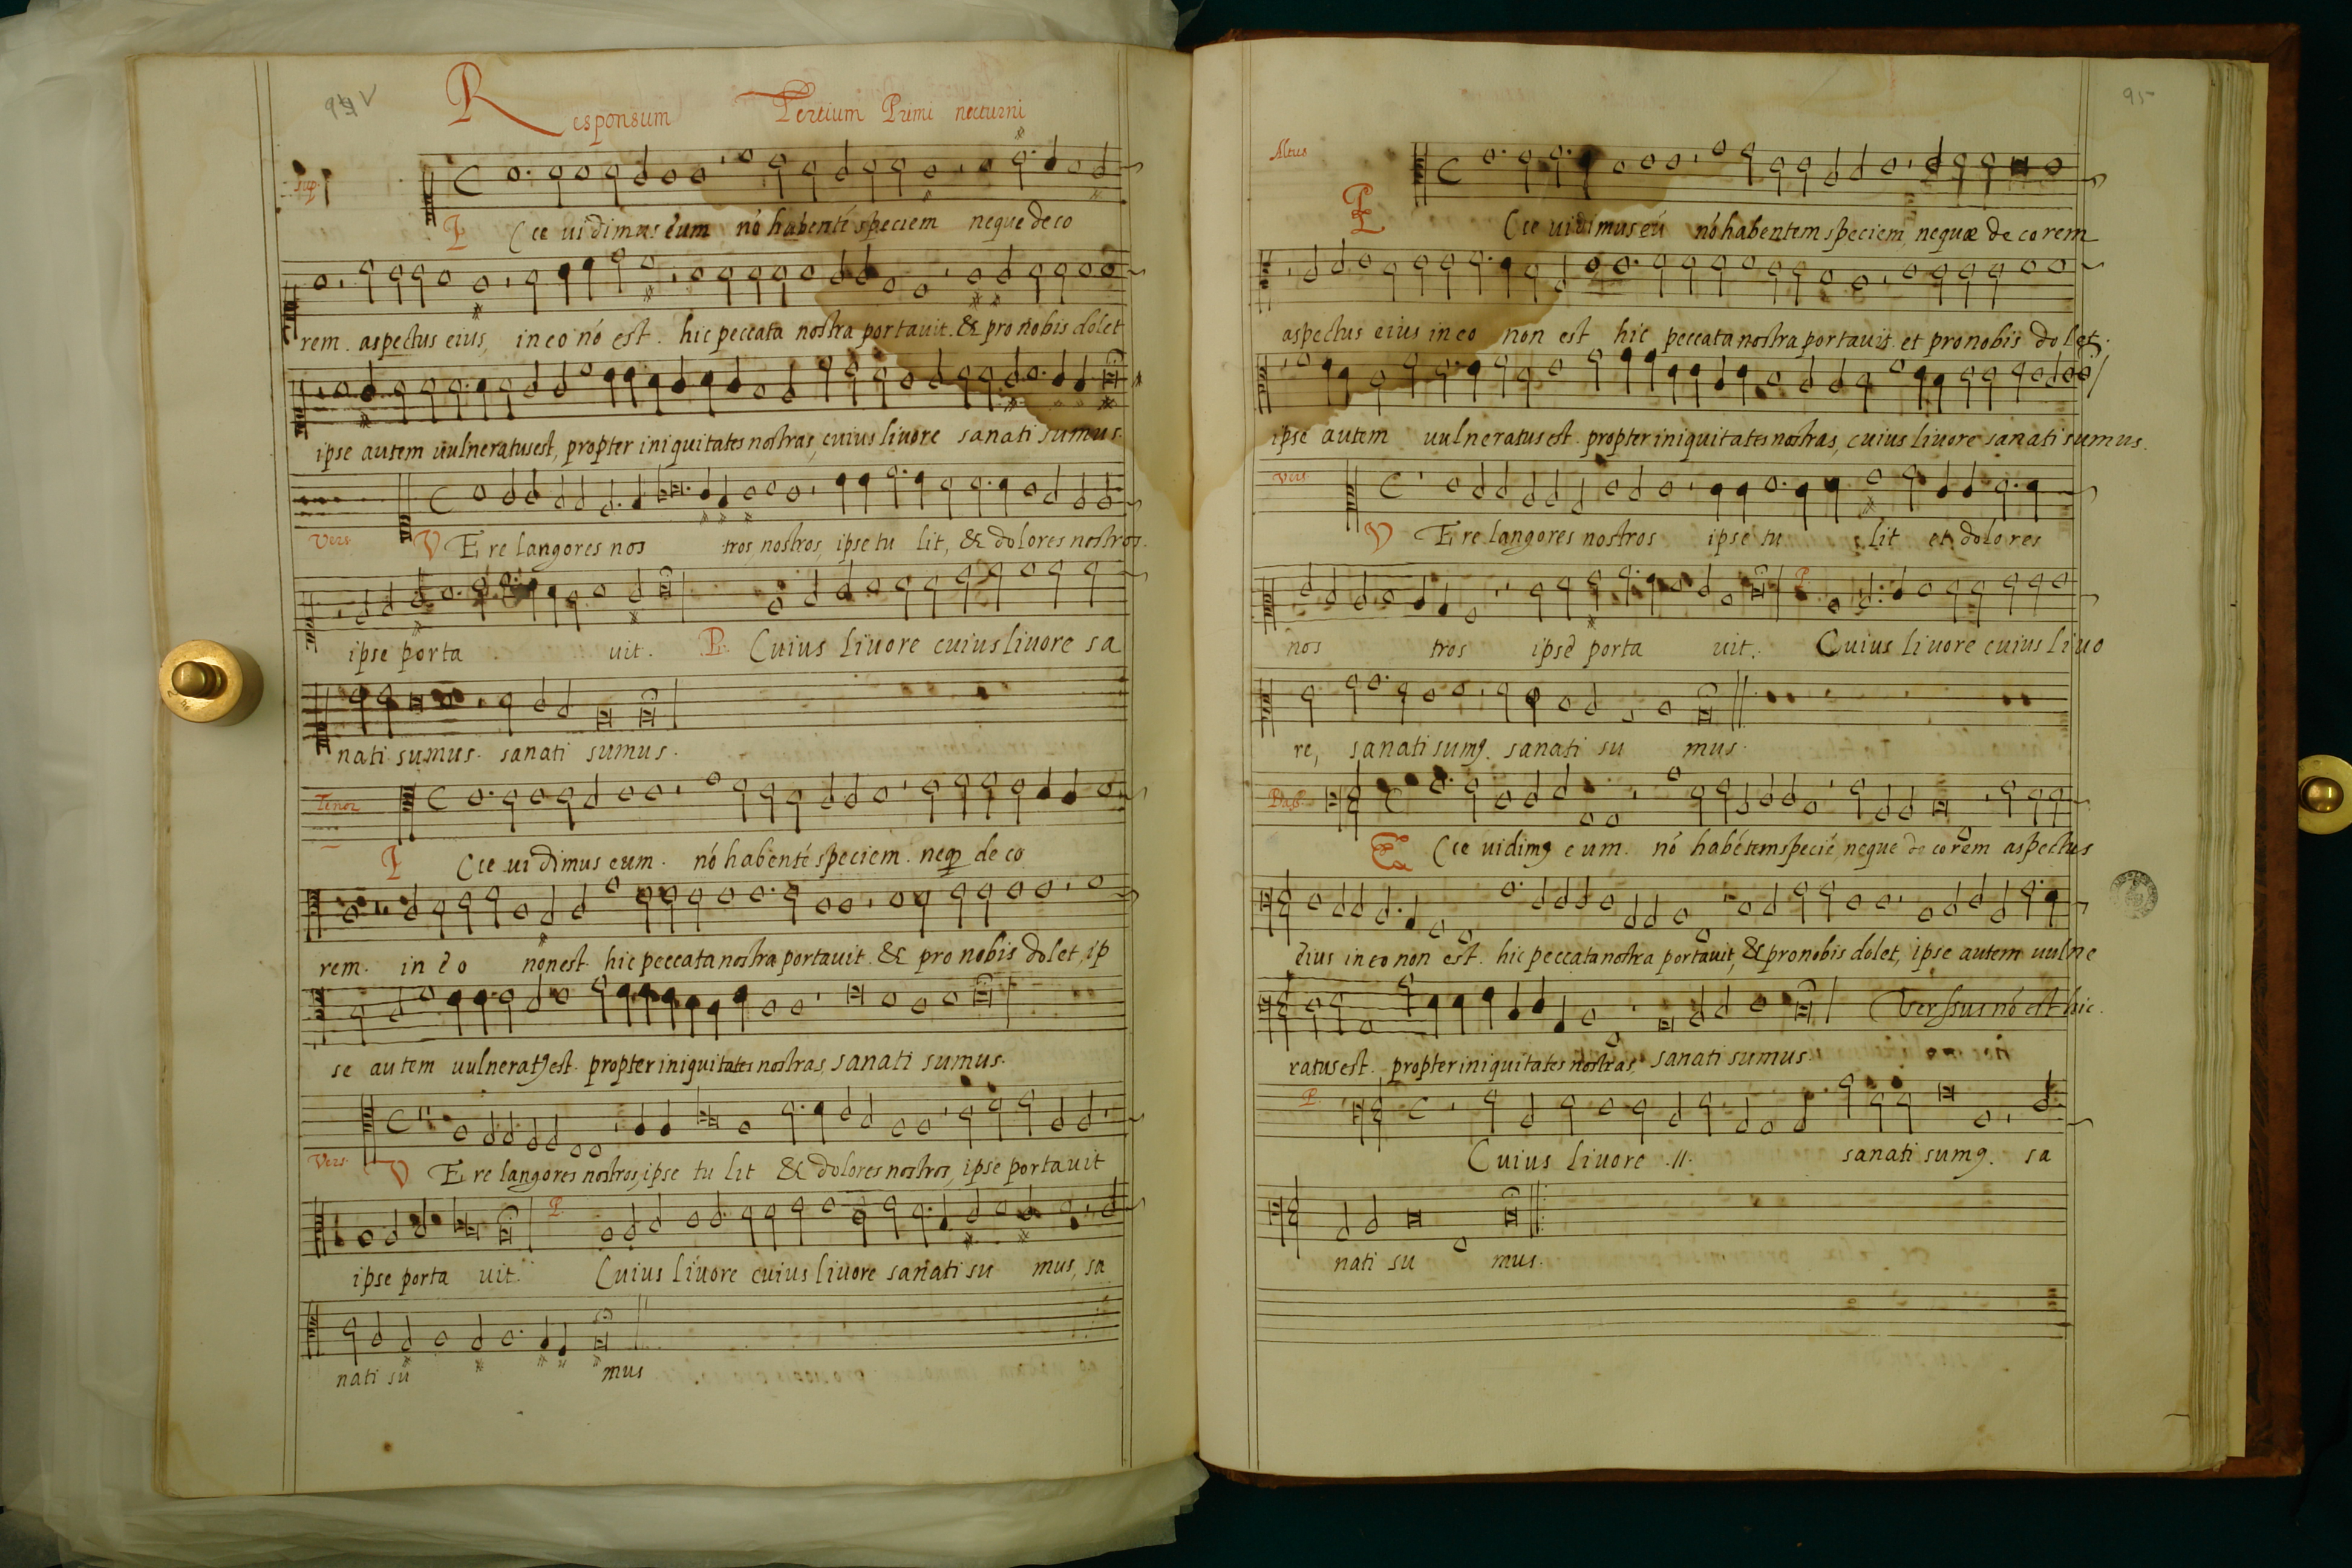 94 V
Responsum Tertium Primi nocturni
Sup.
E Cce uidimus eum nó habenté speciem neque de co
rem. aspectus eius, in eo nó est. hic peccata nostra portauit. & pro nobis dolet
ipse autem uulneratus est, propter iniquitates nostras, cuius liuore sanati sumus.
Vers. V Ere langores nos tros, nostros, ipse tu lit, & dolores nostros.
ipse porta uit. P. Cuius liuore cuius liuore sa
nati sumus. sanati sumus.
Tenor
E Cce ui dimus eum. nó habenté speciem. neq de co
rem. in eo non est. hic peccata nostra portauit. & pro nobis dolet, ip
se autem uulnerat9 est. propter iniquitates nostras, sanati sumus.
Vers. V Ere langores nostros, ipse tu lit & dolores nostros, ipse portauit
P.
ipse porta uit. Cuius liuore cuius liuore sanati su mus, sa
nati su mus
95
Altus
E Cce uidimus eú nó habentem speciem, nequæ de corem
aspectus eius in eo non est hic peccata nostra portauit. et pro nobis dolet.
ipse autem uulneratus est. propter iniquitates nostras, cuius liuore sanati sumus.
Vers.
V Ere langores nostros ipse tu lit et dolores
P.
nos tros ipse porta uit. Cuius liuore cuius liuo
re, sanati sum9. sanati su mus.
Bass.
E Cce uidim9 eum. nó habétem specié, neque de corem aspectus
eius in eo non est. hic peccata nostra portauit, & pro nobis dolet, ipse autem uulne
Verssus nó est hic.
ratus est. propter iniquitates nostras, sanati sumus.
P.
Cuius liuore .//. sanati sum9. sa
nati su mus.